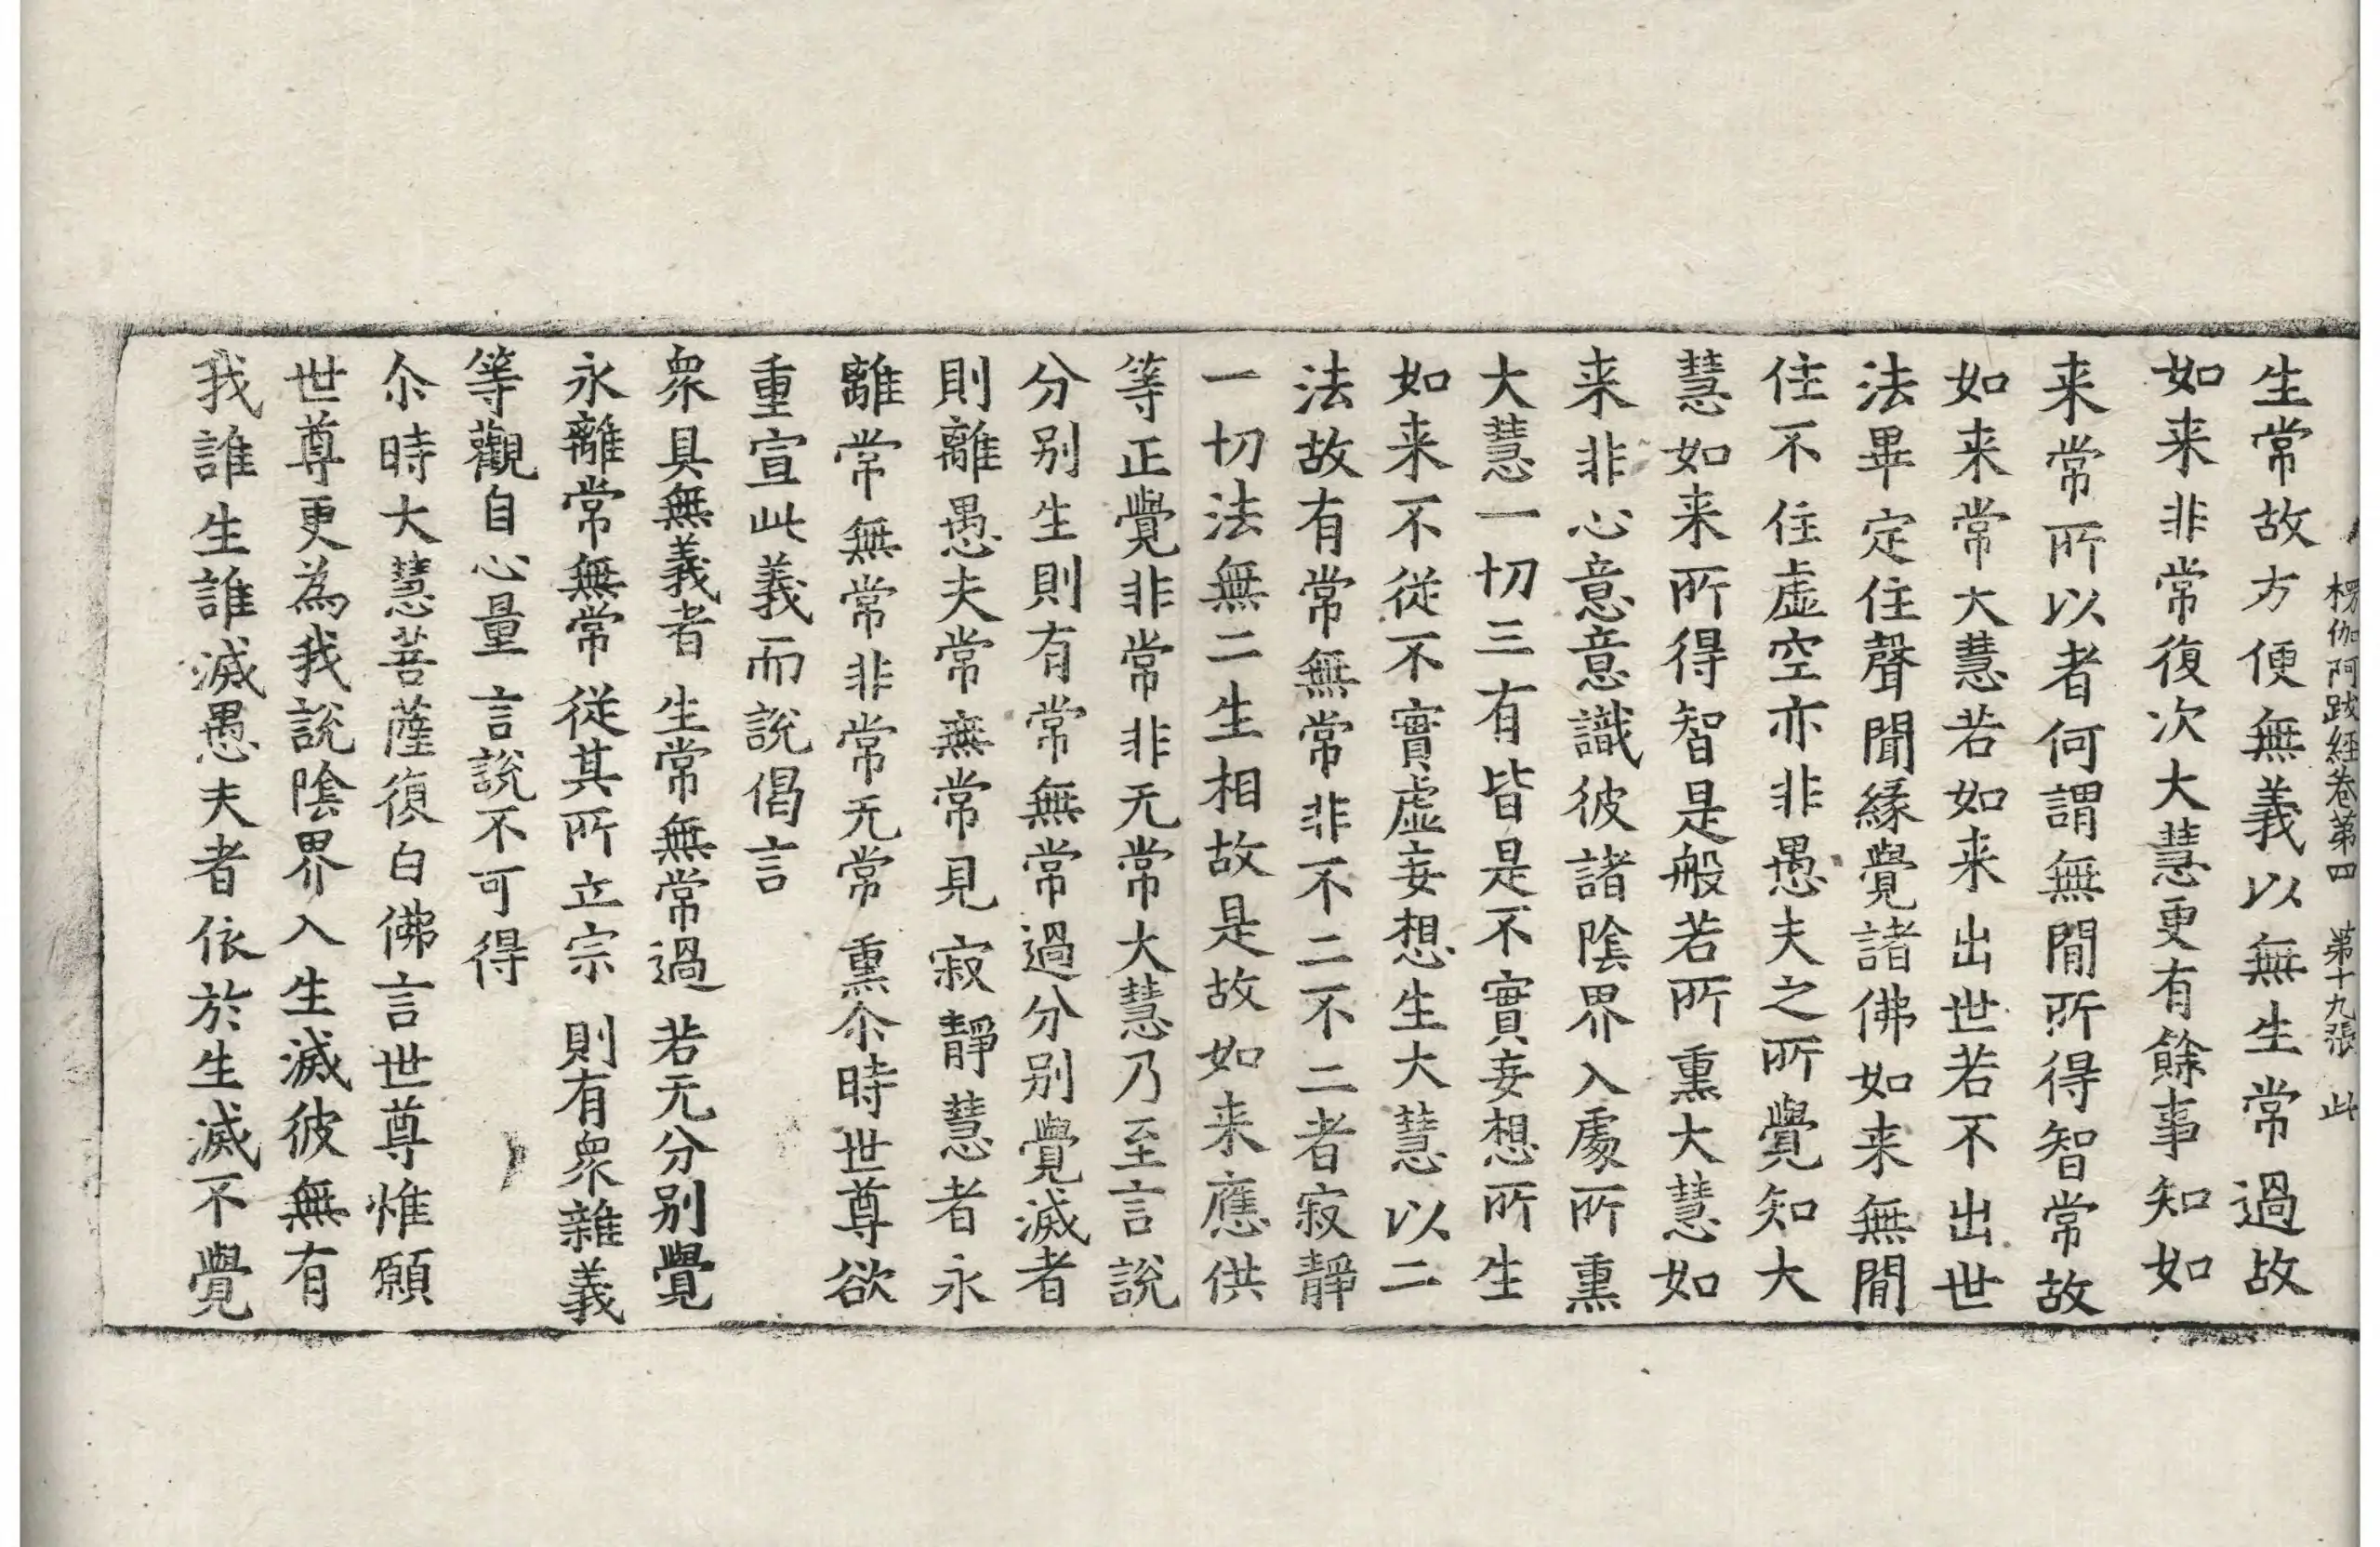 楞伽阿跋経卷第四　第十九張　此
生常故方便無義以無生常過故
如来非常復次大慧更有餘事知如
来常所以者何謂無閒所得智常故
如来常大慧若如来出世若不出世
法畢定住聲聞緣覺諸佛如来無閒
住不住虛空亦非愚夫之所覺知大
慧如来所得智是般若所熏大慧如
来非心意意識彼諸陰界入處所熏
大慧一切三有皆是不實妄想所生
如来不從不實虛妄想生大慧以二
法故有常無常非不二不二者寂靜
一切法無二生相故是故如来應供
等正覺非常非无常大慧乃至言說
分别生則有常無常過分别覺滅者
則離愚夫常無常見寂靜慧者永
離常無常非常无常熏尒時世尊欲
重宣此義而說偈言
衆具無義者　生常無常過　若无分别覺
永離常無常　從其所立宗　則有衆雜義
等觀自心量　言說不可得
尒時大慧菩薩復白佛言世尊惟願
世尊更為我說陰界入生滅彼無有
我誰生誰滅愚夫者依於生滅不覺